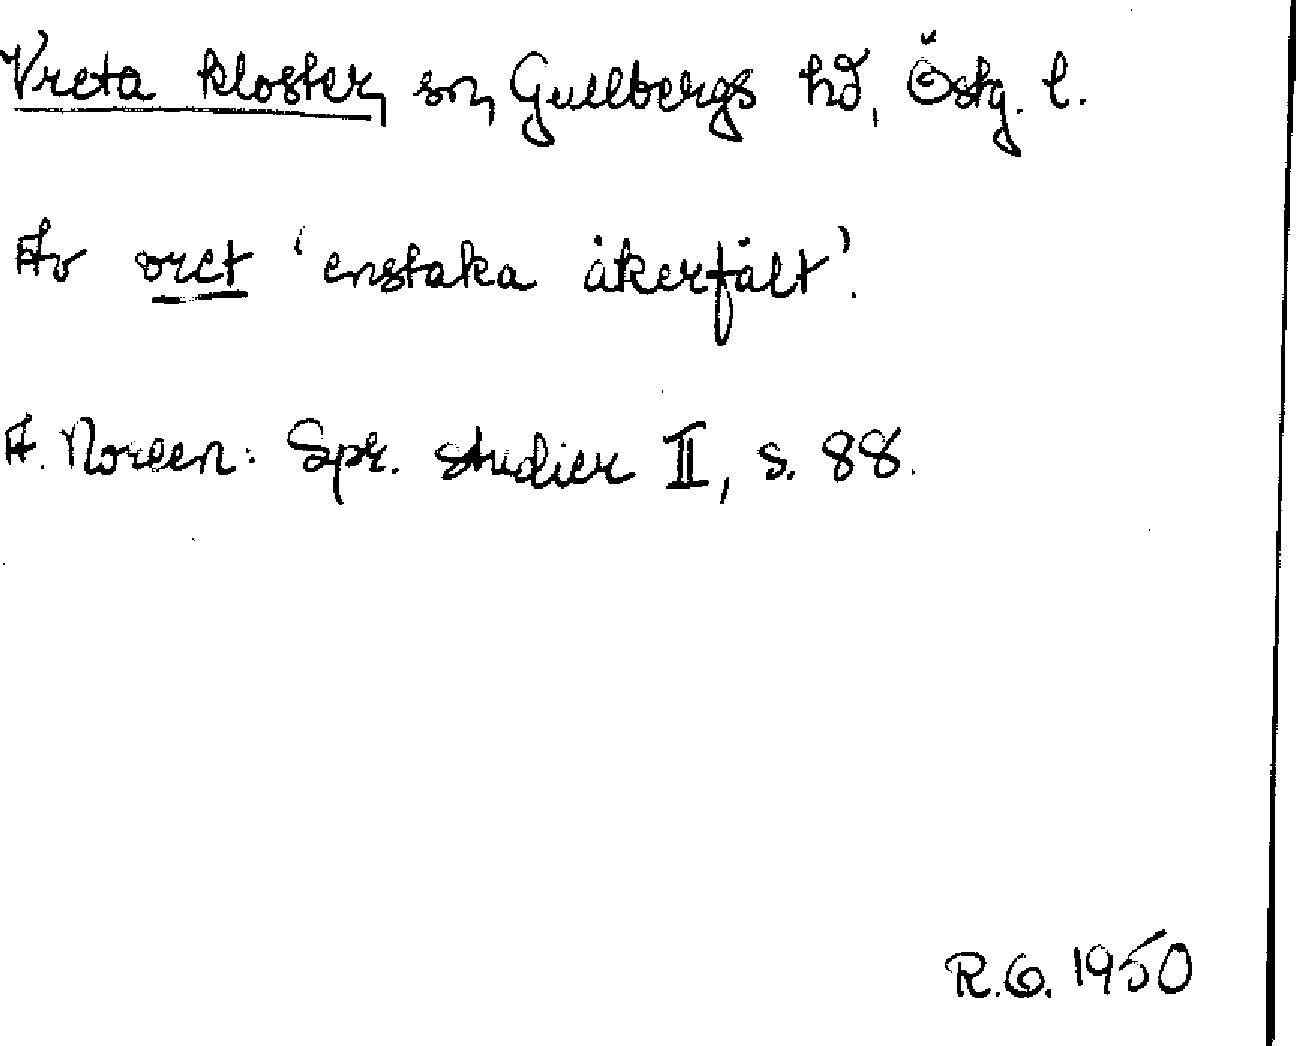 Vreta kloster, sn, Gullbergs hd, Östg. l.
Av vret 'enstaka åkerfält'.
A. Noreen: Spr. studier II, s. 88.
R.G. 1950